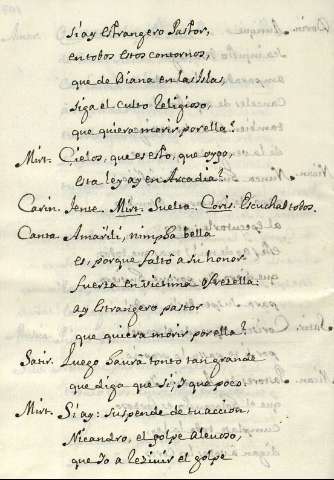 Si ay Estrangero Pastor,
en todos estos contornos,
que de Diana en las Islas,
siga el culto Religioso,
que quiera morir, por ella?
Mirt. Cielos, que es esto, que oygo,
esta ley ay en Arcadia?
Carin. Tente. Mirt. Suelta. Coris. Escuchad todos.
Canta Amarili, nimpha bella
es, porque faltò a su honor
fuerza en victima ofrezella:
ay Estrangero pastor
que quiera morir por ella?
Satir. Luego haura tonto tan grande
que diga que si, I que poco.
Mirt. Si ay: suspende de tu accion,
Nicandro, el golpe aleuoso,
que Io a rezivir el golpe